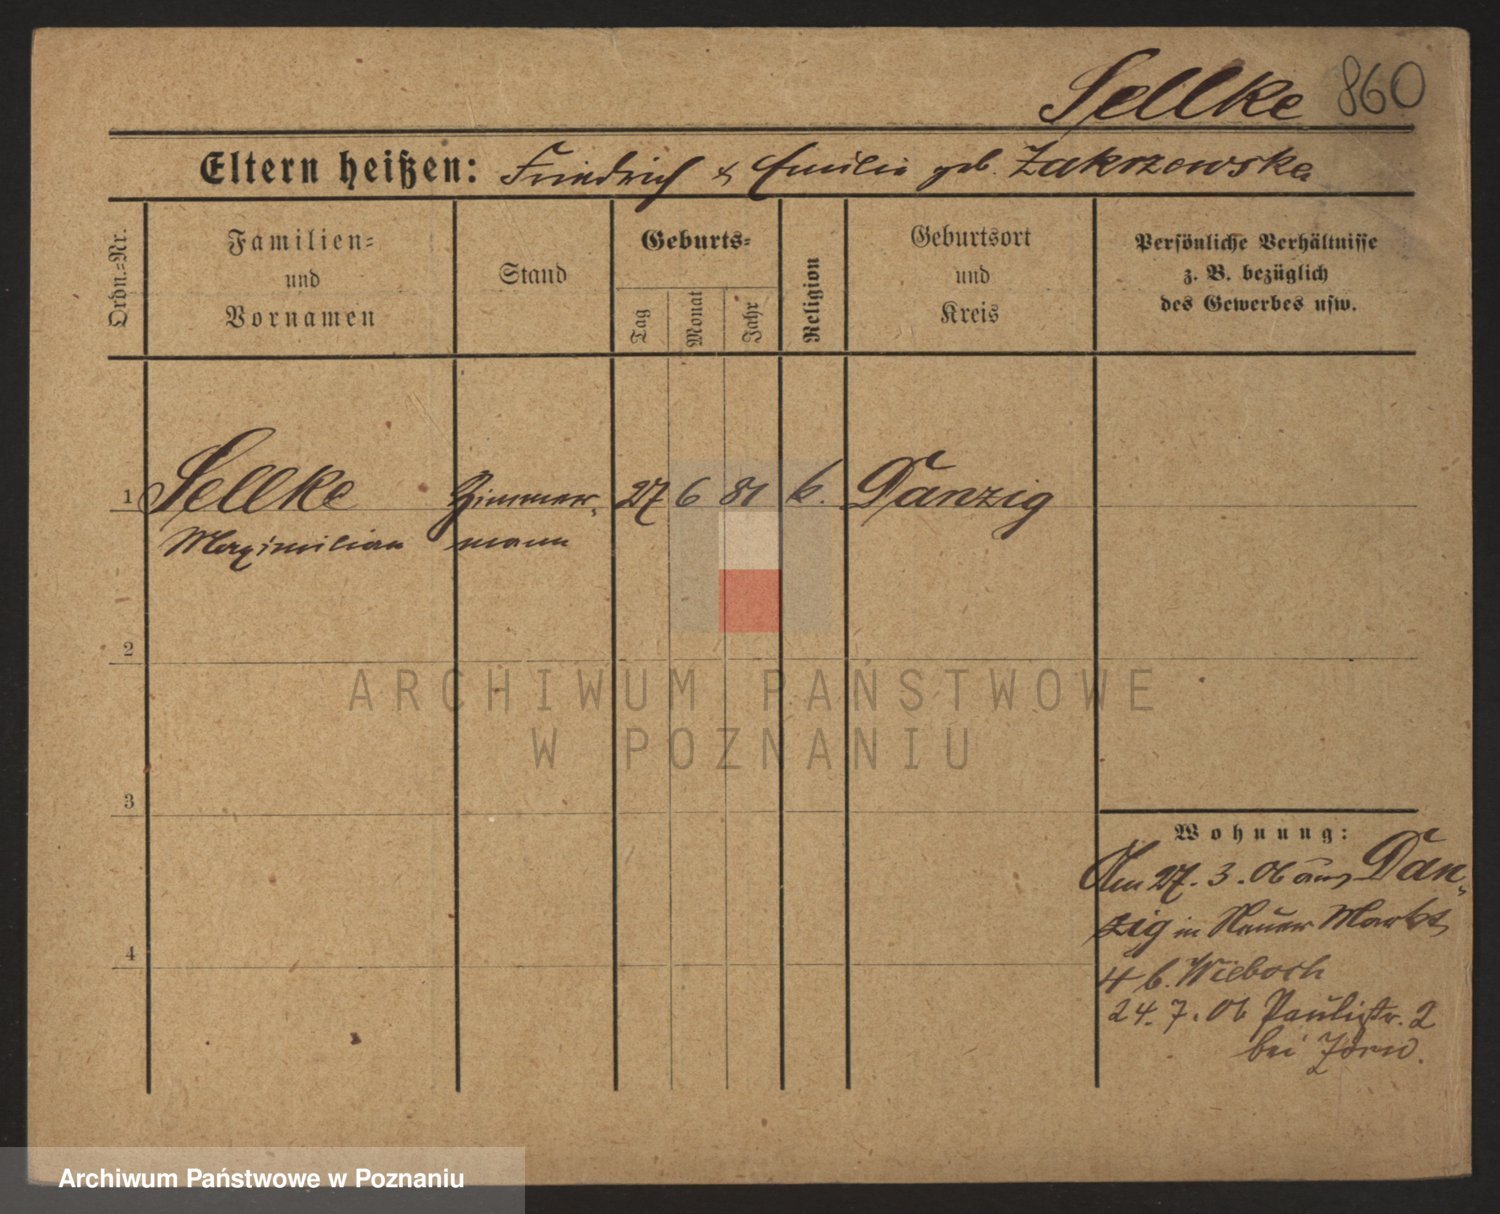 Sellke 860
Eltern heißen: Friedrich & Emilie geb. Zakrzewska
Ordn.-Nr.
Familien-
und
Vornamen
Stand
Geburts-
Tag
Monat
Jahr
Religion
Geburtsort
und
Kreis
Persönliche Verhältnisse
z. B. bezüglich
des Gewerbes usw.
1 Sellke Zimmer- 27 6 81 k. Danzig
Maximilian mann
2
ARCHIWUM PAŃSTWOWE
W POZNANIU
3
Wohnung:
Am 27. 3. 06 aus Dan-
zig in Neuer Markt
4 b.
4
24. 7. 06 Paulistr. 2
bei
Archiwum Państwowe w Poznaniu